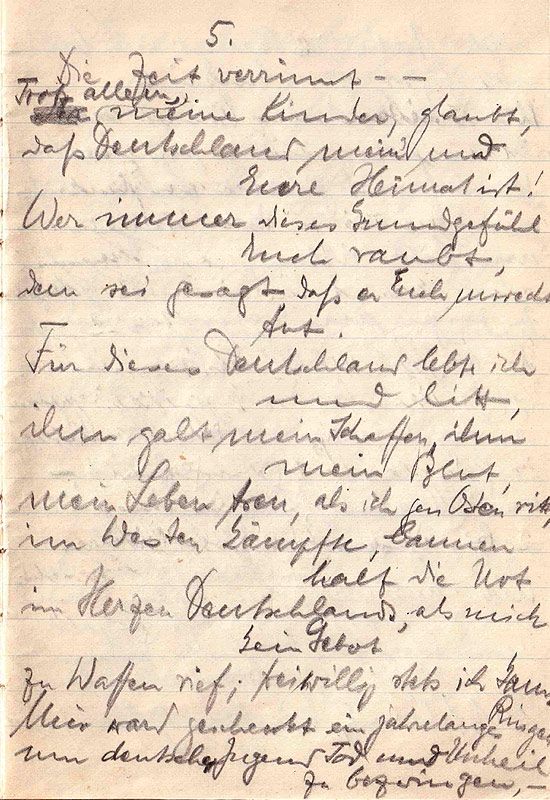 5.
Die Zeit verrinnt – –
Trotz alledem,
meine Kinder, glaubt,
daß Deutschland mein und
Eure Heimat ist!
Wer immer dieses Grundgefühl
Euch raubt,
dem sei gesagt, daß er Euch unrecht
tut.
Für dieses Deutschland lebte ich
und litt,
ihm galt mein Schaffen, ihm
mein Blut,
mein Leben treu, als ich gen Osten ritt,
im Westen kämpfte, bannen
half die Not
im Herzen Deutschlands, als mich
sein Gebot
zu Waffen rief; freiwillig stets ich
Mir ward geschenkt ein jahrelanges Ringen
um deutscher Jugend Tod und Unheil
zu bezwingen, –